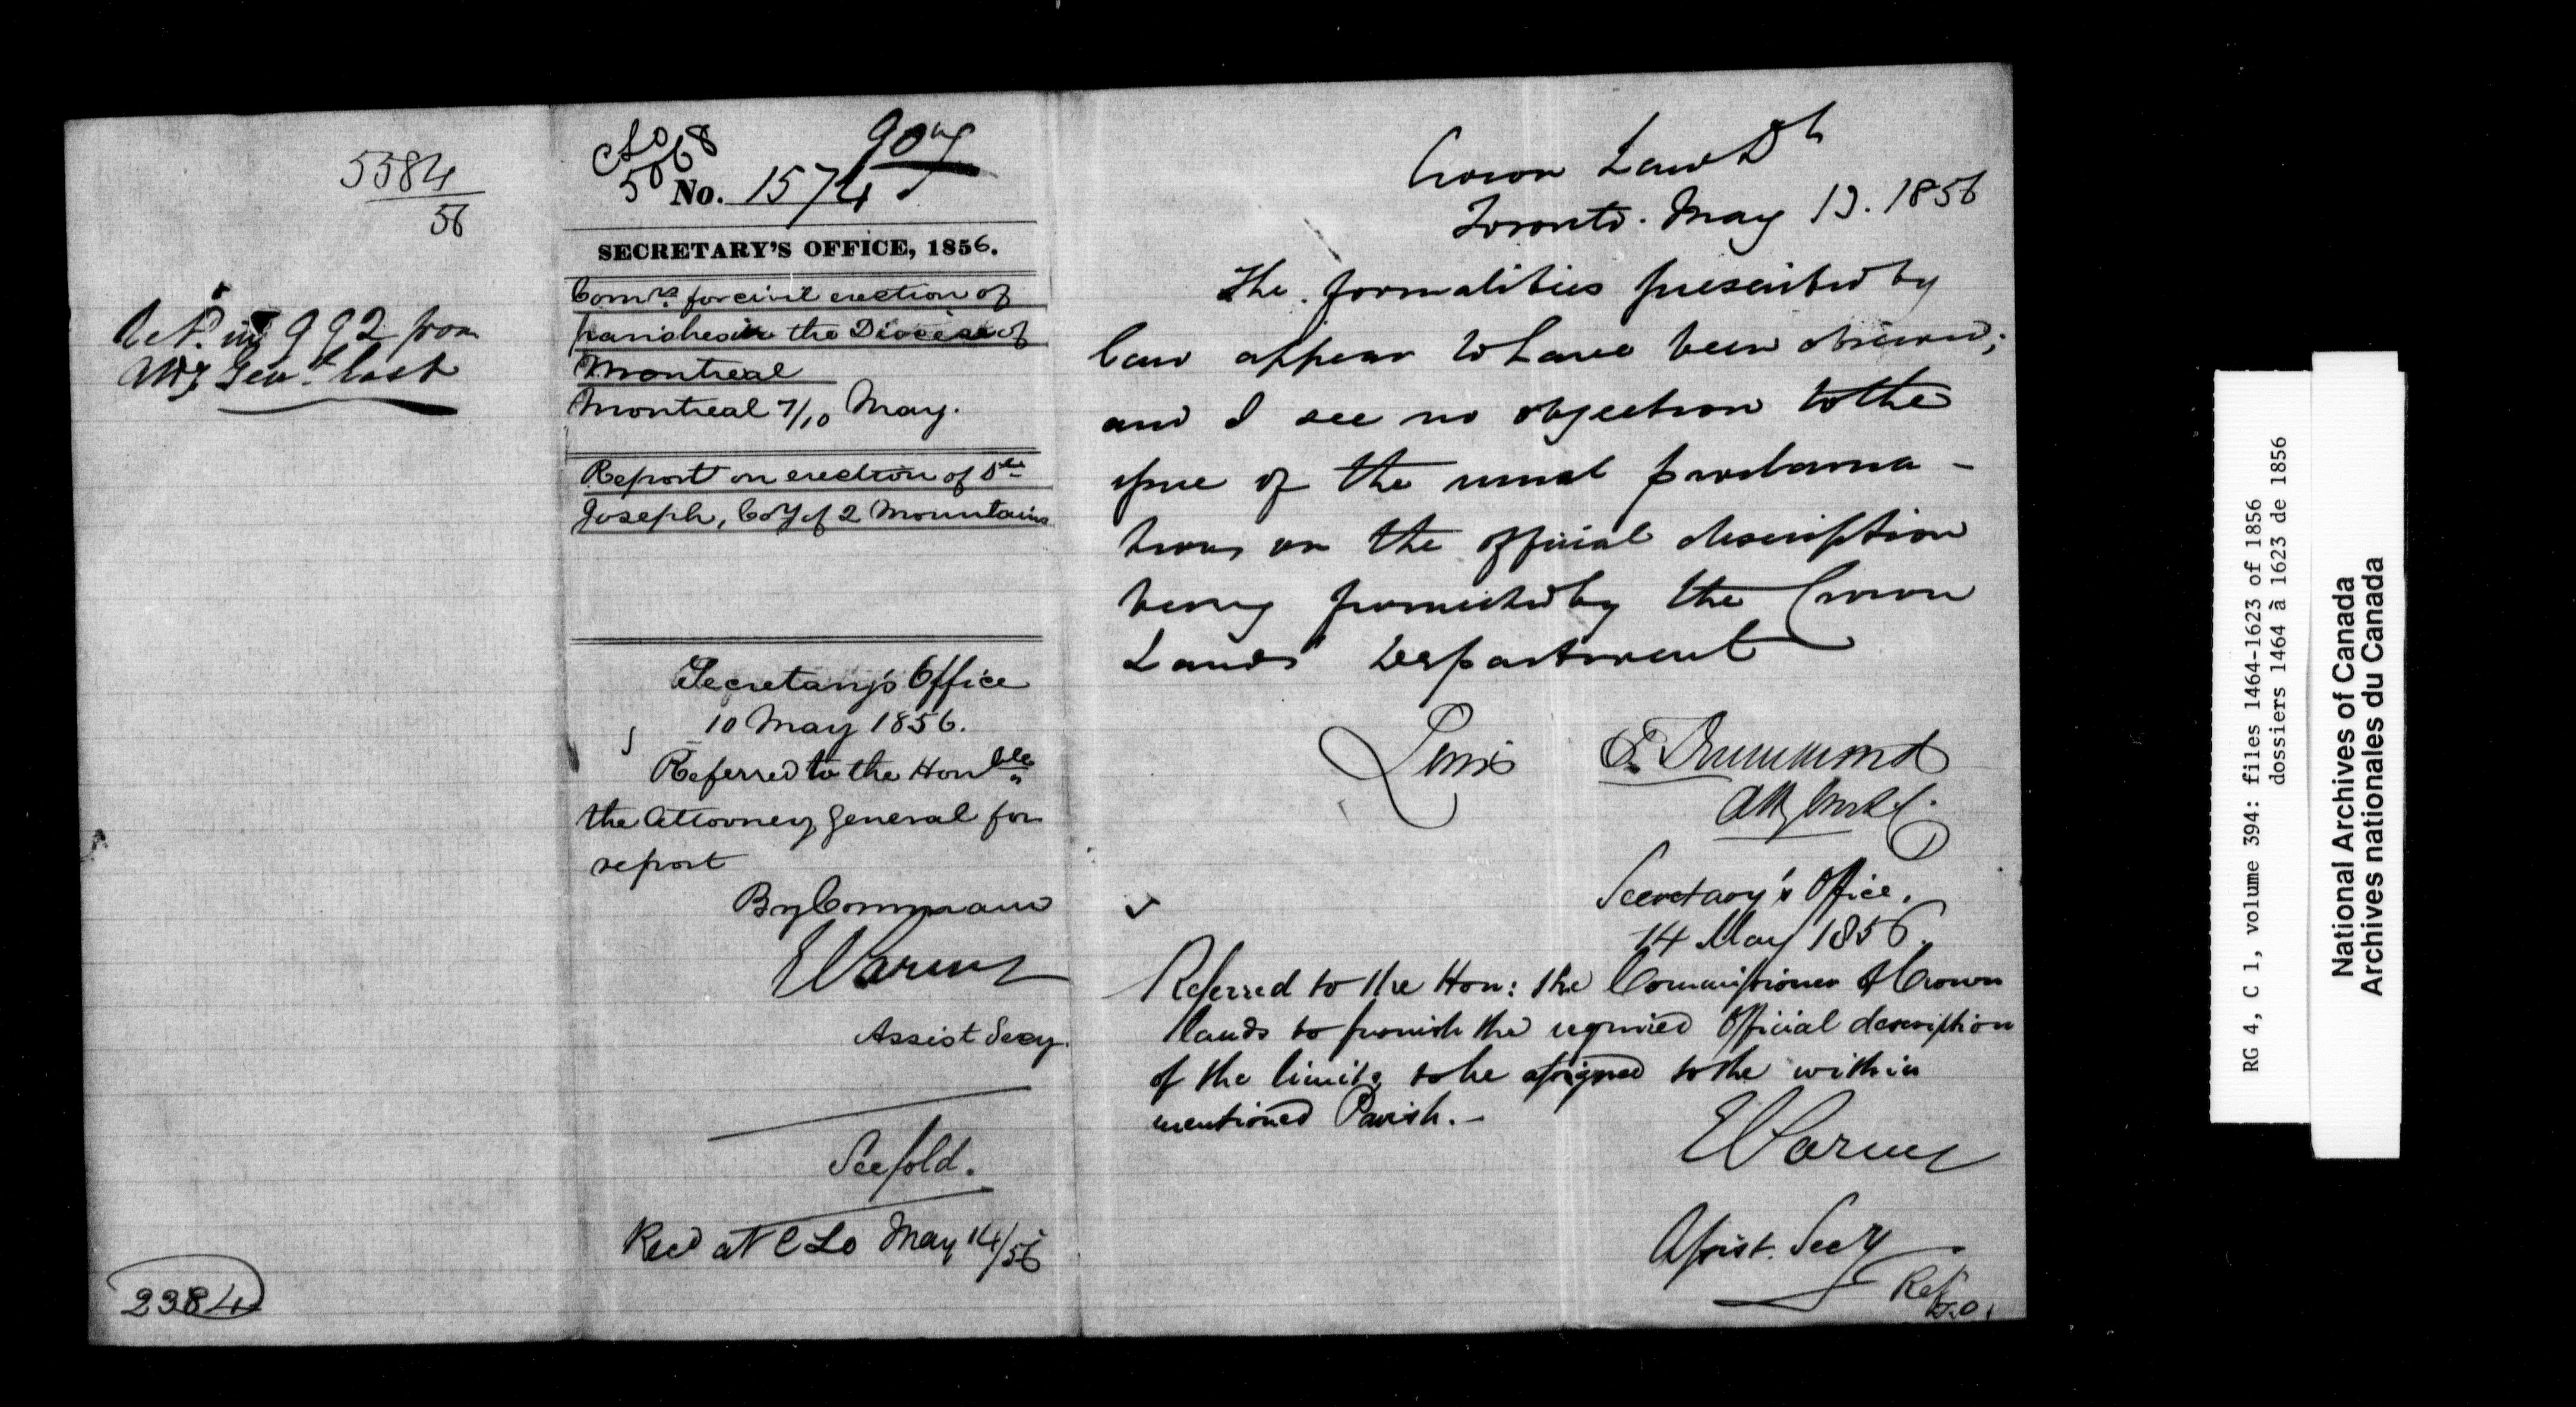 5584
56
992 from
Atty Genl. last
2384
CLO
5068
No. 1574
SECRETARY'S OFFICE, 1856.
Comrs. for civil erection of
parishes in the Diocese of
Montreal
Montreal 7/10 May.
Report on erection of Ste
Joseph, Coy of 2 Mountains
Secretary's Office
10 May 1856.
Referred to the Honble
the Attorney General for
report
By Command
E Parent
Assist Secy.
See fold.
Recd at C L O May 14/56
Crown Law Dt
Toronto. May 13. 1856
The formalities prescribed by
law appear to have been observed;
and I see no objection to the
issue of the usual proclama-
tion, on the official description
being furnished by the Crown
Lands Department
Lewis T. Drummond
Atty
Secretary's Office.
14 May 1856.
Referred to the Hon: the Commissioner of Crown
lands to furnish the required Official description
of the limits to be assigned to the within
mentioned Parish.-
E Parent
Assist. Secy
RG 4, C 1, volume 394: files 1464-1623 of 1856
dossiers 1464 à 1623 de 1856
National Archives of Canada
Archives nationales du Canada